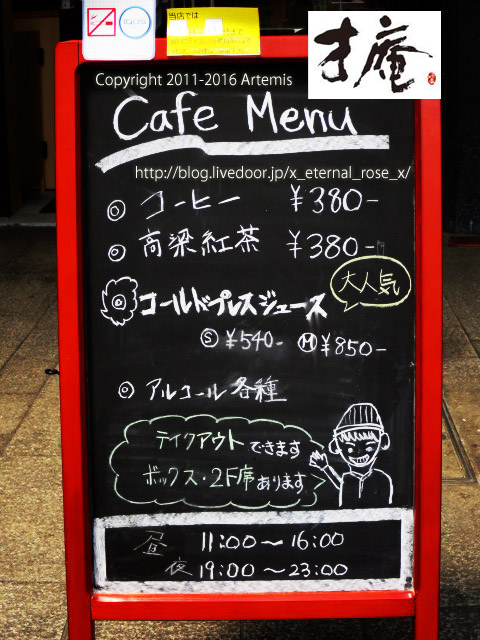 当店では
才庵
Copyright 2011-2016 Artemis
Cafe Menu
http://blog.livedoor.jp/x_eternal_rose_x/
◎ コーヒー ¥380-
◎ 高梁紅茶 ¥380-
大人気
コールドプレスジュース
Ⓢ ¥540- Ⓜ ¥850-
◎ アルコール各種
テイクアウトできます
ボックス・2F席あります
昼 11:00～16:00
夜 19:00～23:00